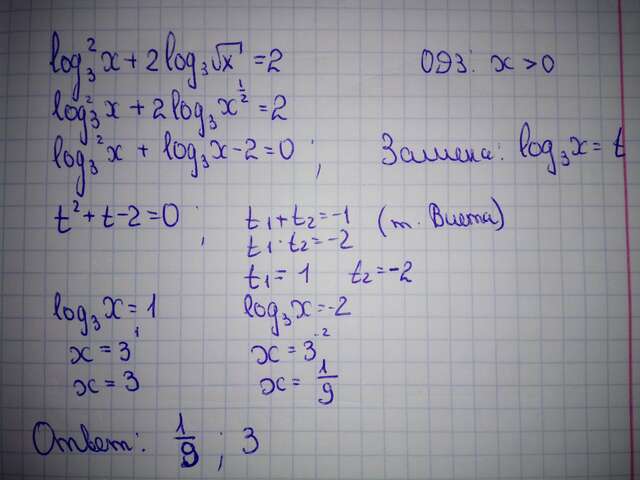 log₃²x + 2log₃√x = 2 ОДЗ: x > 0
log₃²x + 2log₃x^(1/2) = 2
log₃²x + log₃x - 2 = 0 ; Замена: log₃x = t
t² + t - 2 = 0 ; t₁ + t₂ = -1 (т. Виета)
t₁ · t₂ = -2
t₁ = 1 t₂ = -2
log₃x = 1 log₃x = -2
x = 3¹ x = 3⁻²
x = 3 x = 1/9
Ответ: 1/9 ; 3